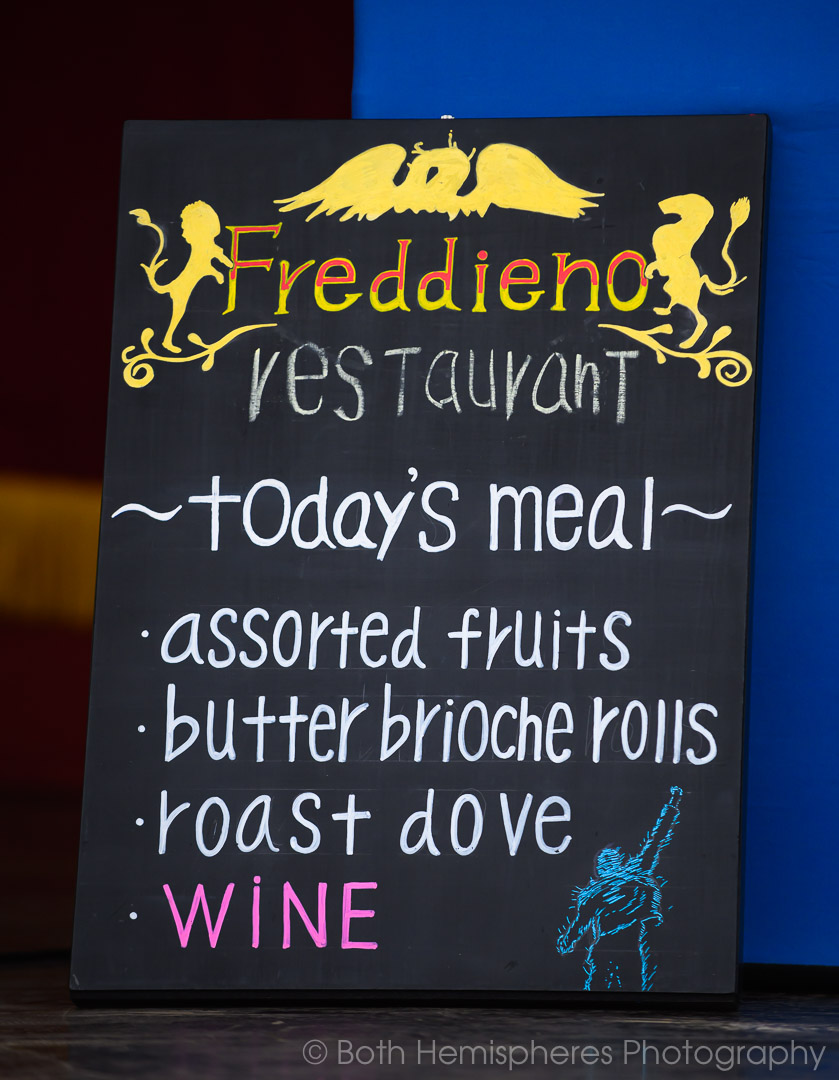 Freddieno
restaurant
~today's meal~
· assorted fruits
· butter brioche rolls
· roast dove
· WiNE
© Both Hemispheres Photography